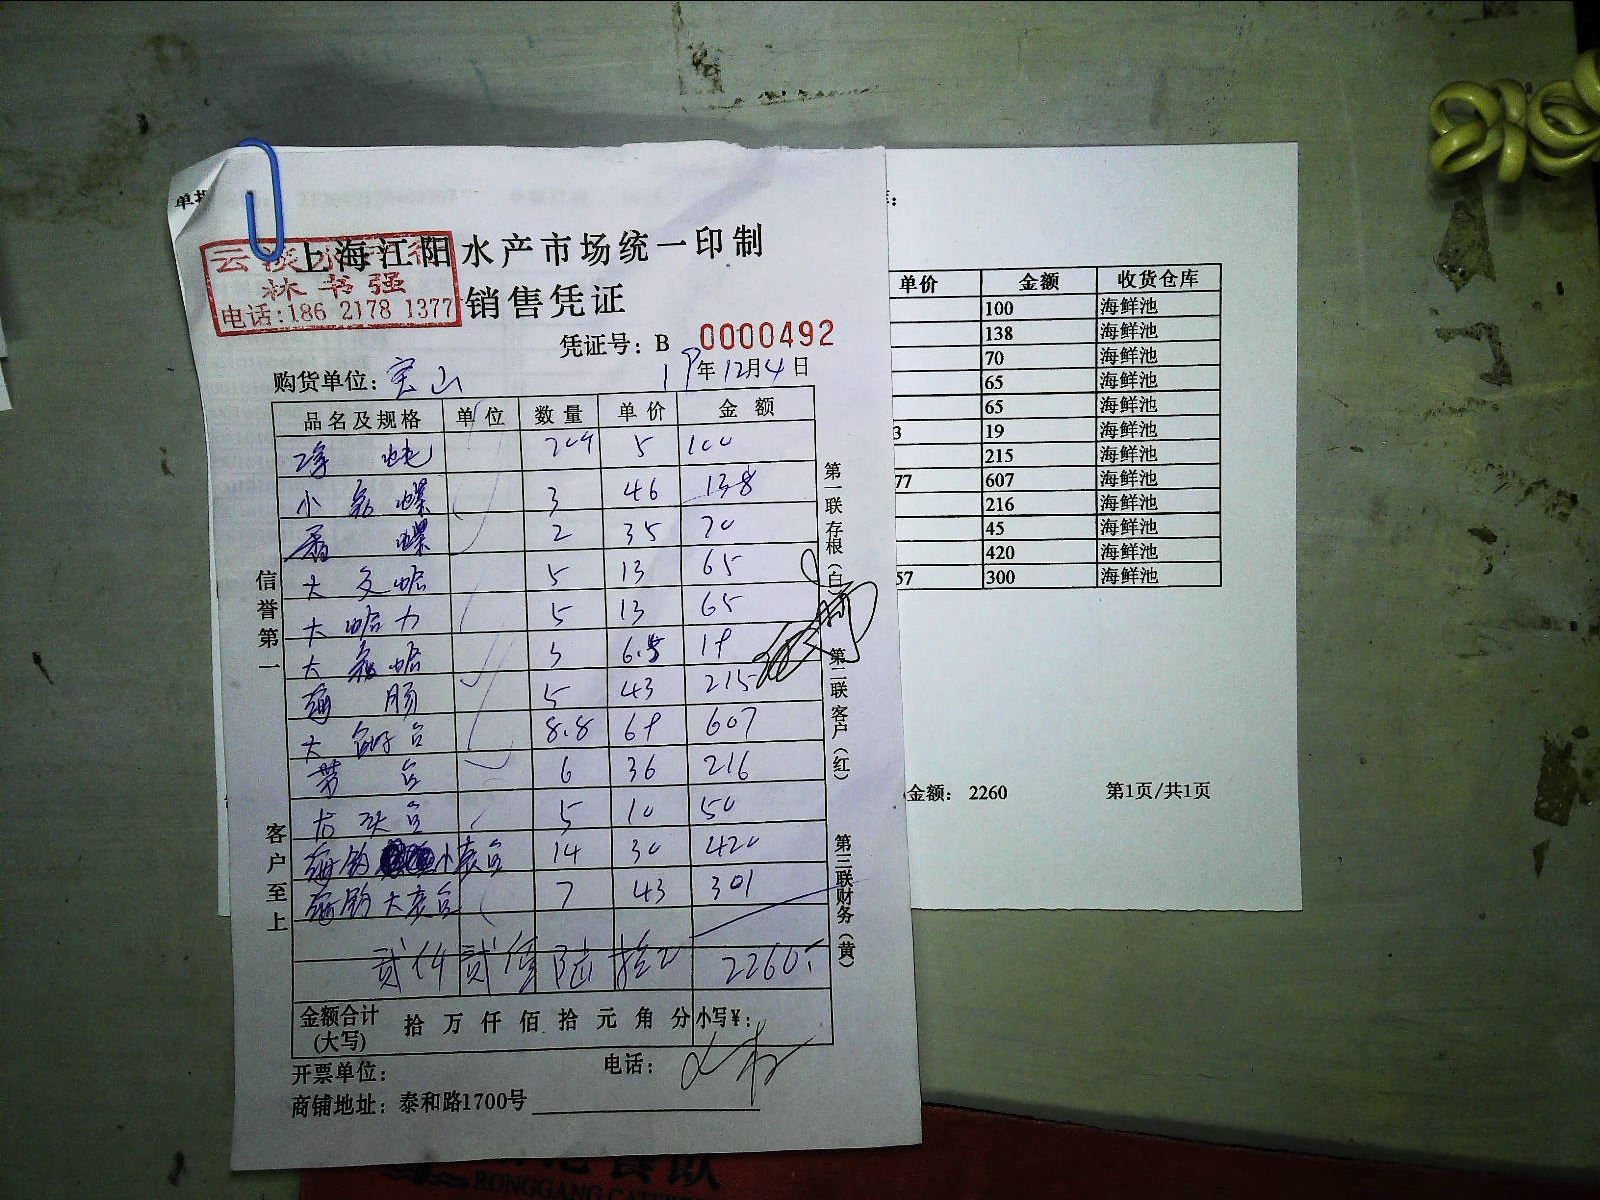 上海江阳水产市场统一印制
销售凭证
林书强
电话:186 2178 1377
凭证号: B 0000492
购货单位: 宝山 19年12月4日
品名及规格 单位 数量 单价 金额
5 100
小 螺 3 46 138
螺 2 35 70
大 文蛤 5 13 65
大 蛤 力 5 13 65
大 蛤 3 6.5 19
海 肠 5 43 215
大 8.8 69 607
6 36 216
5 10 50
海钓 小 14 30 420
海钓 大 7 43 301
贰仟贰佰陆拾元 2260
金额合计
(大写)
拾 万 仟 佰 拾 元 角 分 小写¥:
开票单位: 电话:
商铺地址: 泰和路1700号
信誉第一
客户至上
第一联存根(白)
第二联客户(红)
第三联财务(黄)
单价 金额 收货仓库
100 海鲜池
138 海鲜池
70 海鲜池
65 海鲜池
65 海鲜池
3 19 海鲜池
215 海鲜池
77 607 海鲜池
216 海鲜池
45 海鲜池
420 海鲜池
57 300 海鲜池
金额: 2260 第1页/共1页
RONGGANG